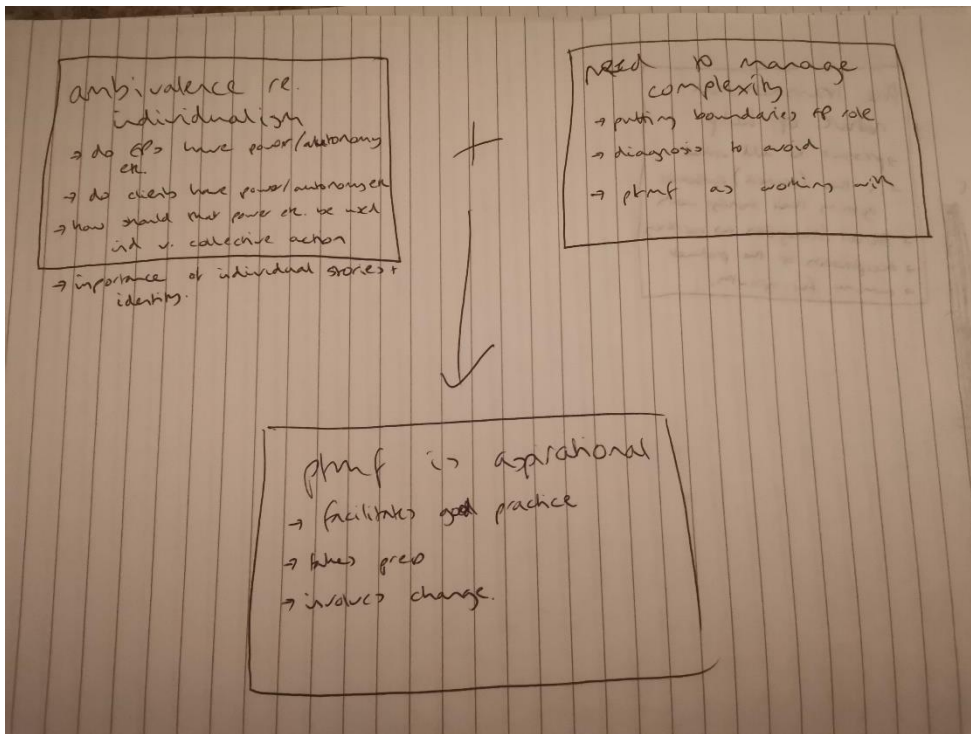 ambivalence re.
individualism
→ do EPs have power/autonomy
etc.
→ do clients have power/autonomy etc
→ how should that power etc. be used
ind v. collective action
→ importance of individual stories +
identity.
+
need to manage
complexity
→ putting boundaries EP role
→ diagnosis to avoid
→ ptmf as working with
ptmf is aspirational
→ facilitates good practice
→ takes prep
→ involves change.